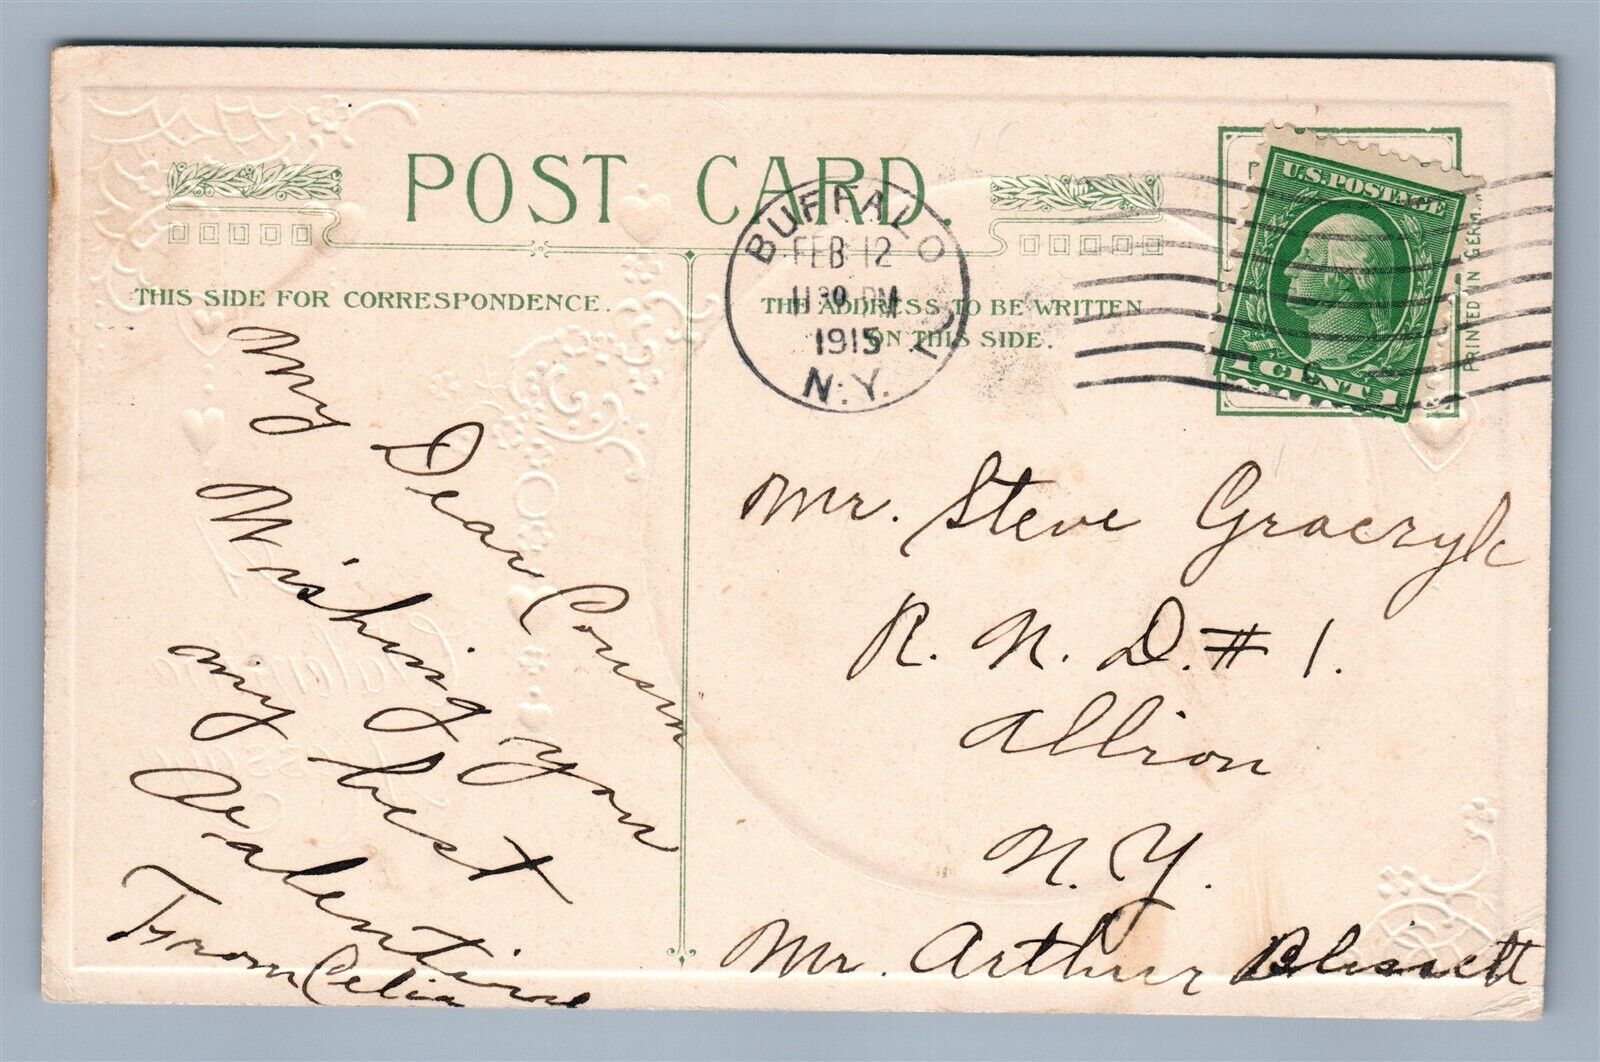 POST CARD.
THIS SIDE FOR CORRESPONDENCE.
THE ADDRESS TO BE WRITTEN
ON THIS SIDE.
BUFFALO
FEB 12
11 30 PM
1915
N.Y.
U.S. POSTAGE
1 CENT 1
PRINTED IN GERM
My Dear Cousin
Wishing you
my best
Valentine
From Celia
Mr. Steve Graczyk
R. N. D. # 1.
Allion
N. Y.
Mr. Arthur Blissett